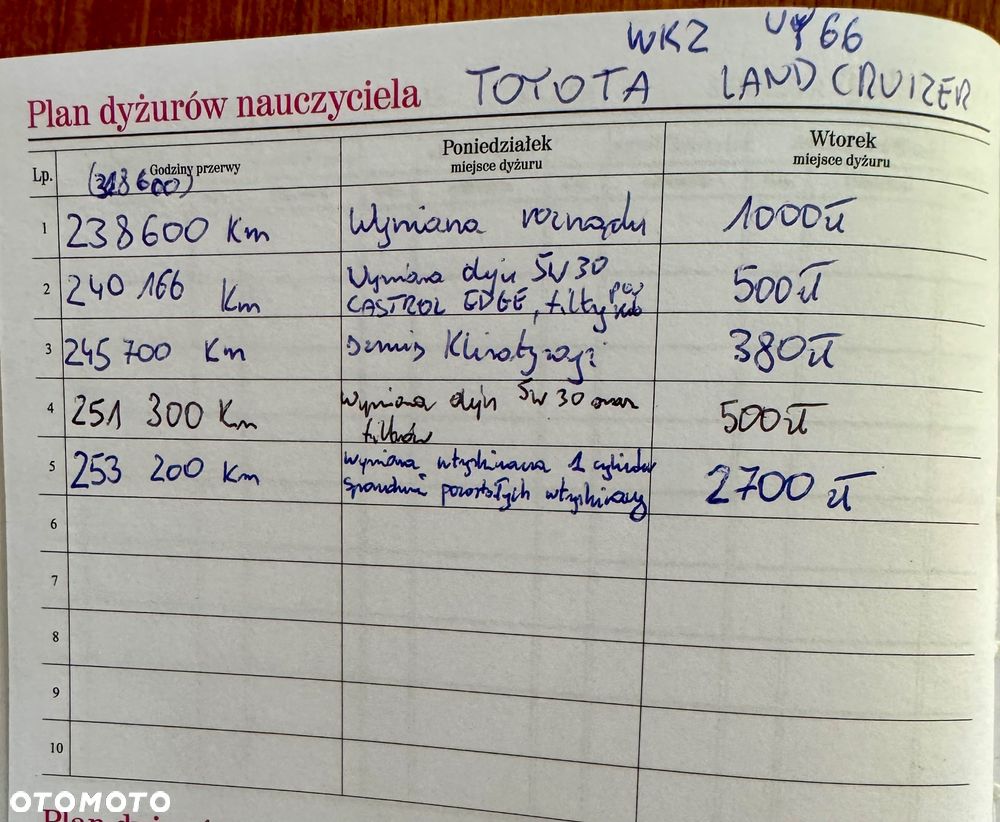 WKZ UY66
Plan dyżurów nauczyciela TOYOTA LAND CRUIZER
Lp. Godziny przerwy Poniedziałek miejsce dyżuru Wtorek miejsce dyżuru
(318600)
1 238600 Km Wymiana rozrządu 1000zł
2 240 166 Km Wymiana oleju 5W30 500zł
CASTROL EDGE, filtry
3 245 700 Km Serwis Klimatyzacji 380zł
4 251 300 Km Wymiana oleju 5W30 oraz 500zł
filtrów
5 253 200 Km Wymiana wtryskiwacza 1 cylinder 2700 zł
Sprawdzenie pozostałych wtryskiwaczy
6
7
8
9
10
OTOMOTO